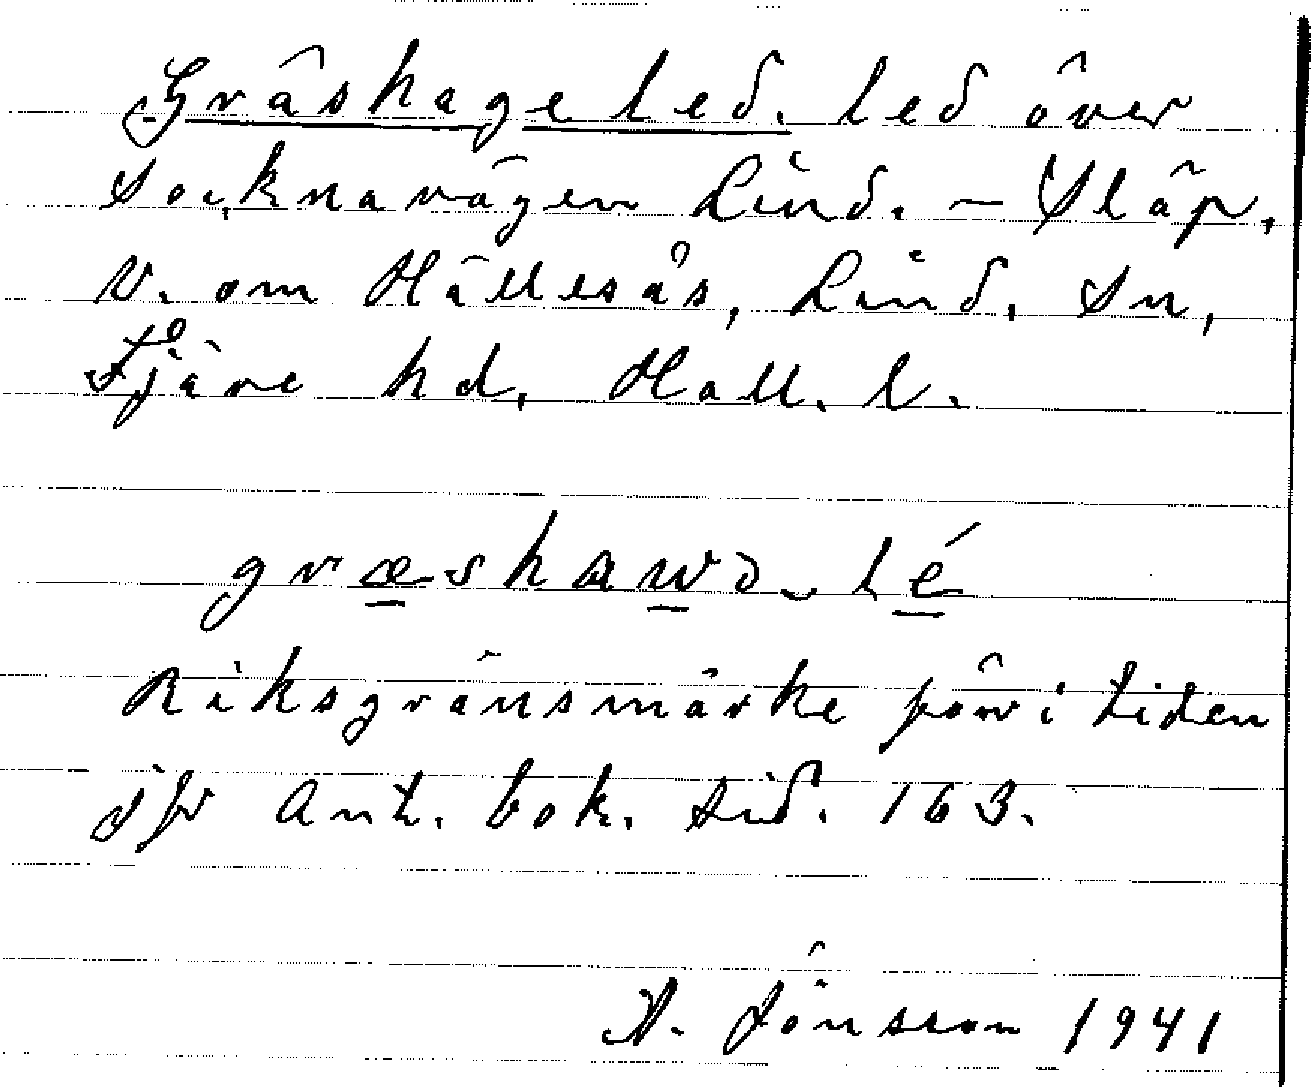 Gräskageled. Led över
Socknavägen Lind. – Släp,
v. om Hällesås, Lind. Sn,
Fjäre hd, Hall. l.
græskawə‿lé
Riksgränsmärke förr i tiden
jfr Ant. bok. sid. 163.
A. Jönsson 1941